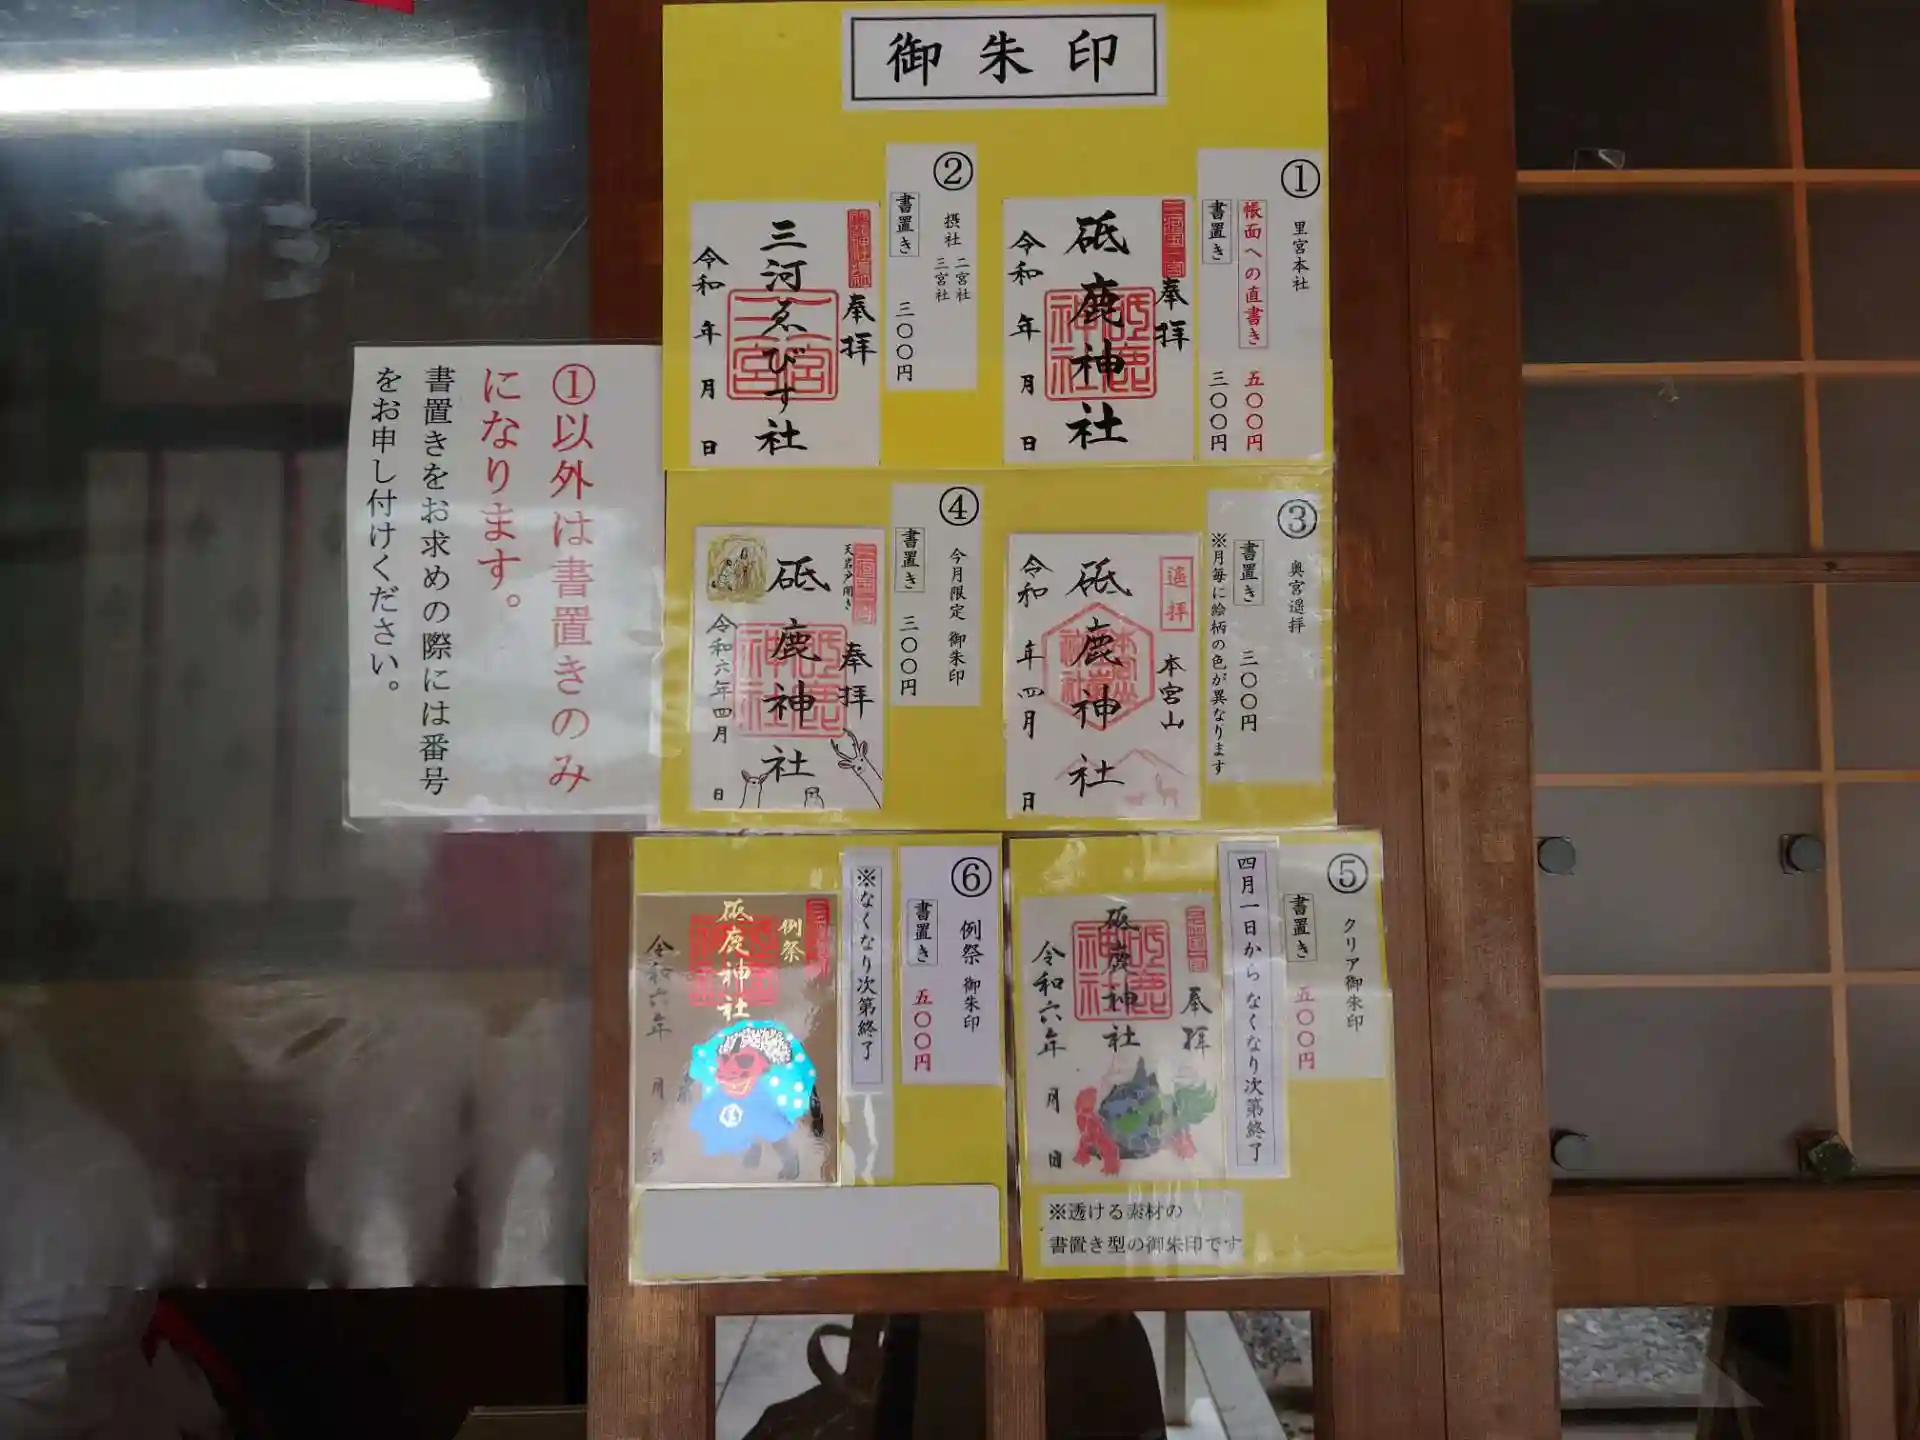 御朱印
①
里宮本社
帳面への直書き 五〇〇円
書置き 三〇〇円
奉拝
砥鹿神社
令和 年 月 日
②
摂社 二宮社
三宮社
書置き 三〇〇円
奉拝
三河ゑびす社
二宮
三宮
令和 年 月 日
③
奥宮遥拝
書置き 三〇〇円
※月毎に絵柄の色が異なります
遙拝
本宮山
砥鹿神社
令和 年四月 日
④
今月限定 御朱印
書置き 三〇〇円
天岩戸開き
奉拝
砥鹿神社
令和六年四月 日
⑤
クリア御朱印
書置き 五〇〇円
四月一日から なくなり次第終了
奉拝
砥鹿神社
令和六年 月 日
※透ける素材の
書置き型の御朱印です
⑥
例祭 御朱印
書置き 五〇〇円
※なくなり次第終了
例祭
砥鹿神社
令和六年 月 日
①以外は書置きのみ
になります。
書置きをお求めの際には番号
をお申し付けください。